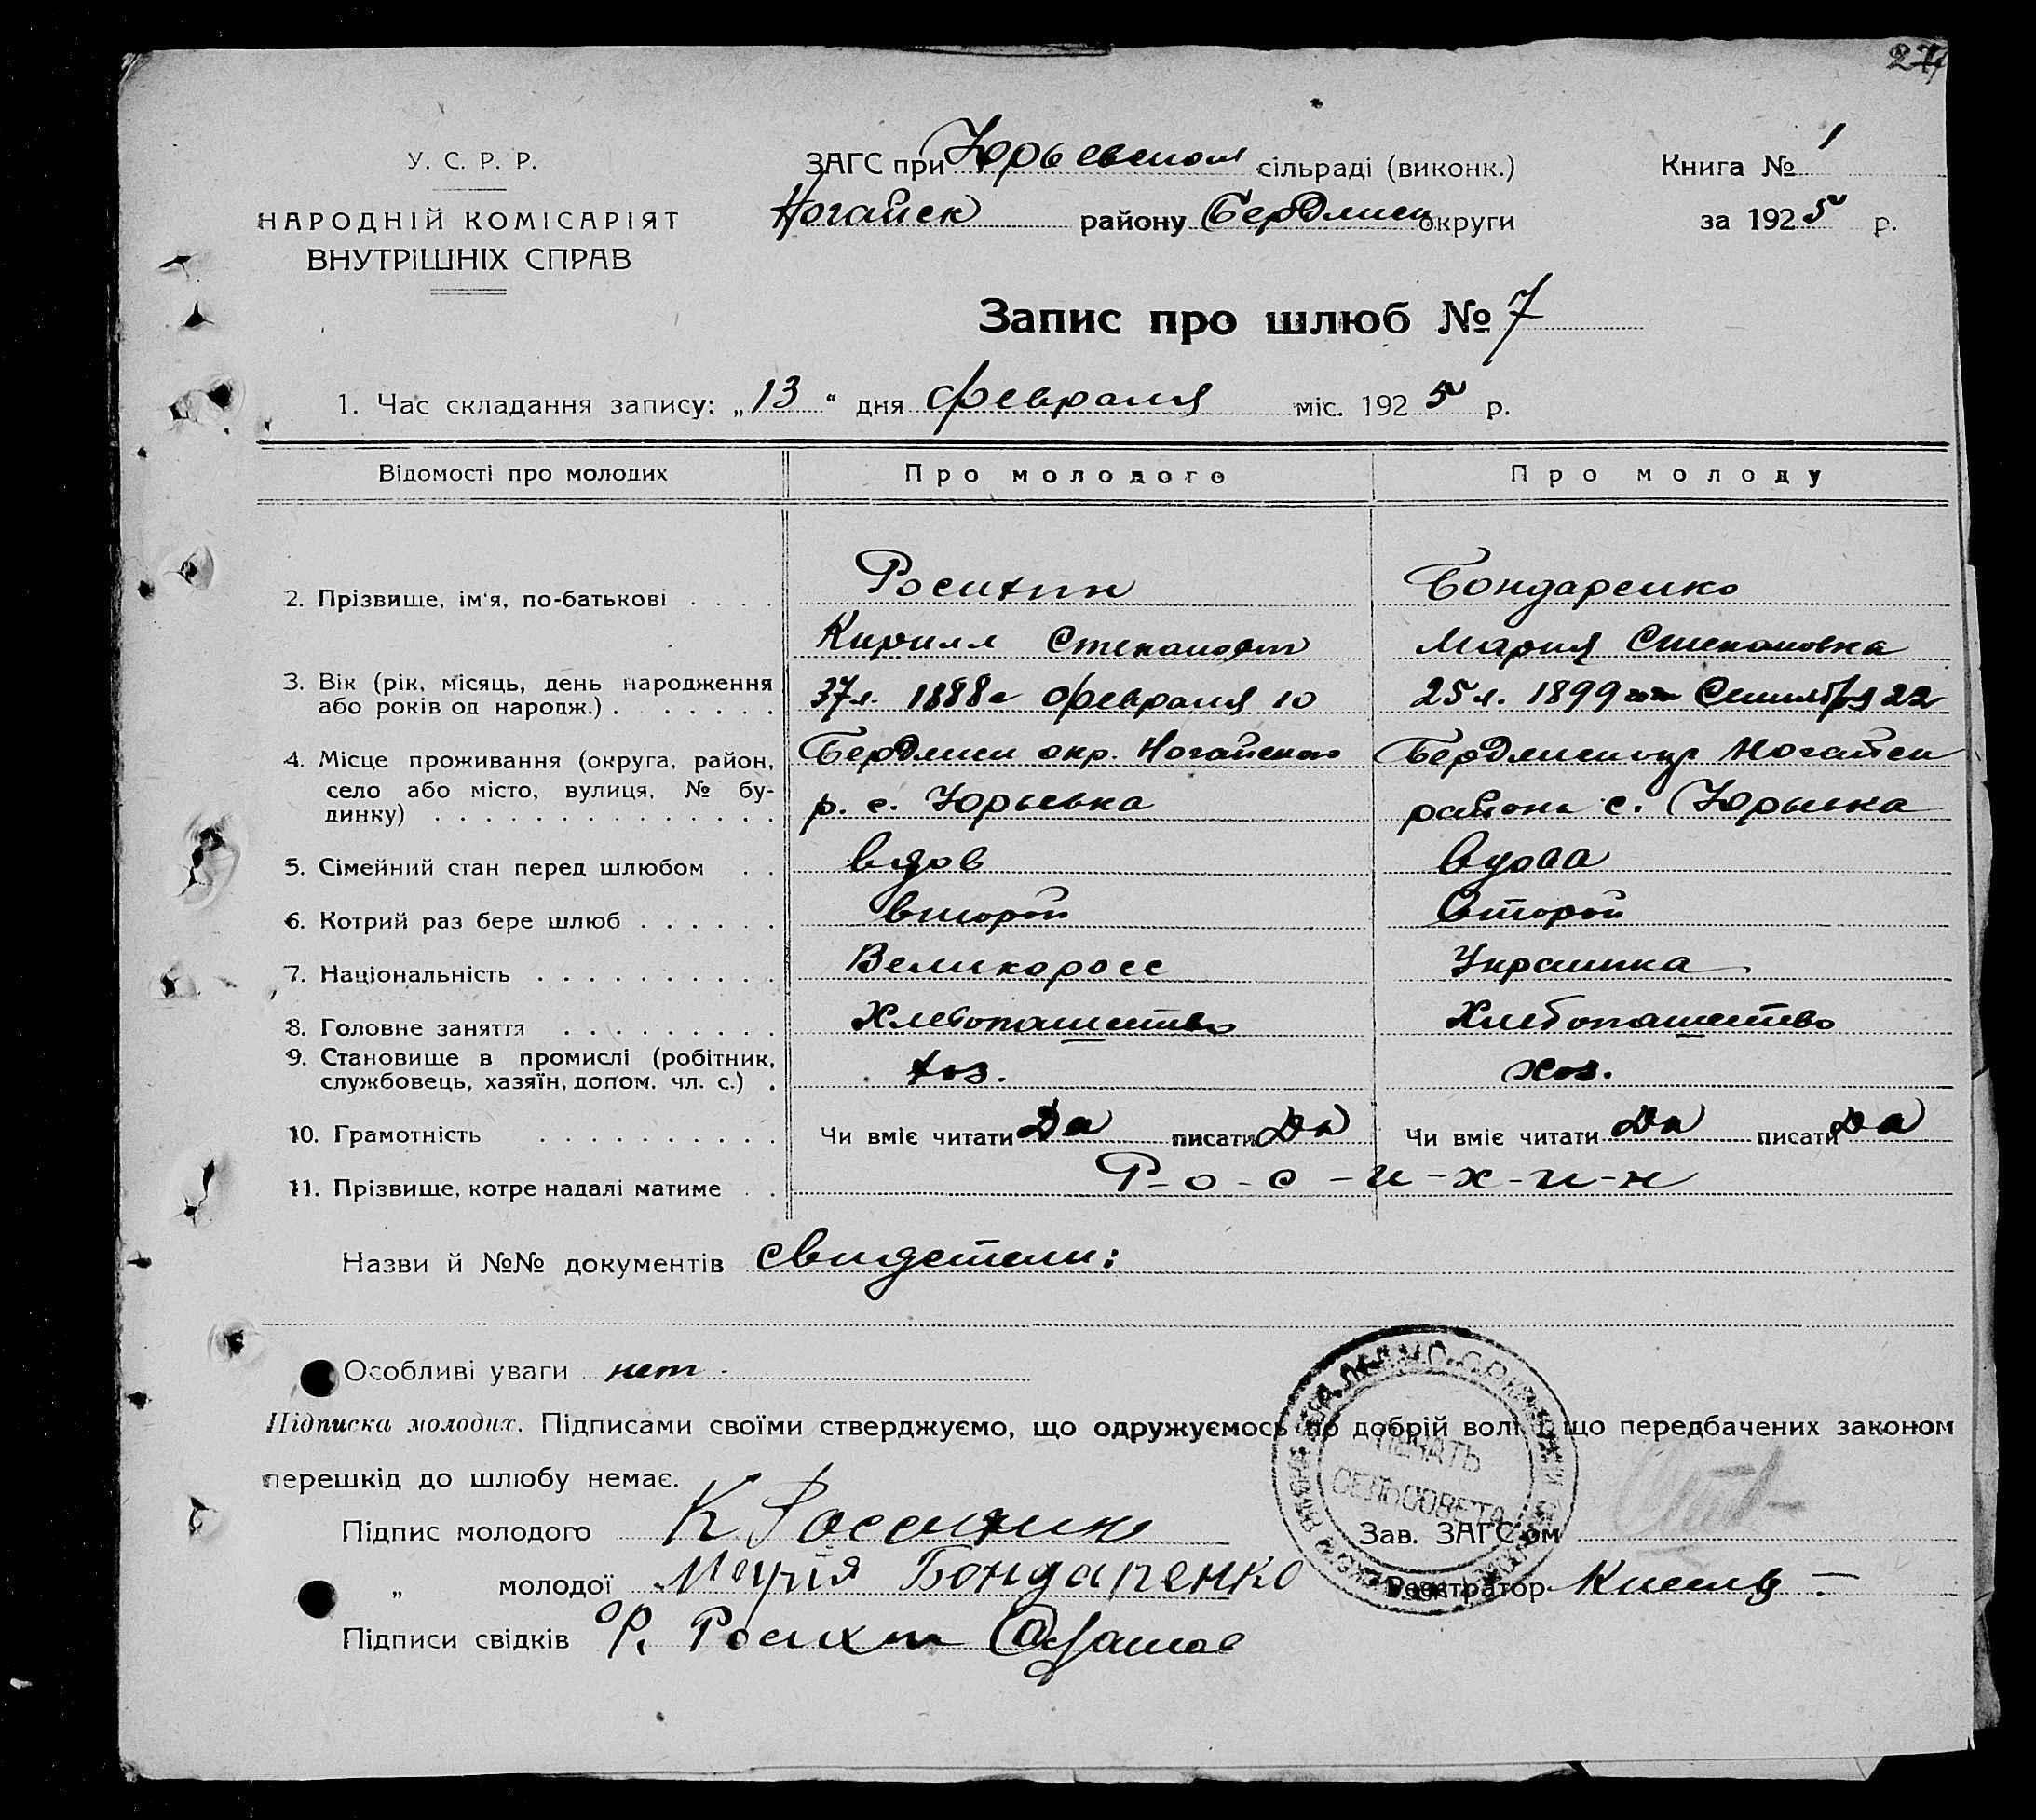 27
У. С. Р. Р.
НАРОДНІЙ КОМІСАРІЯТ
ВНУТРІШНІХ СПРАВ
ЗАГС при Юрьевском сільраді (виконк.)
Ногайск району Бердянск округи
Книга № 1
за 1925 р.
Запис про шлюб № 7
1. Час складання запису: „13“ дня февраля міс. 1925 р.
Відомості про молодих Про молодого Про молоду
2. Прізвище, ім'я, по-батькові . . . . Росихин Бондаренко
Кирилл Степанович Мария Степановна
3. Вік (рік, місяць, день народження 37 л. 1888 г февраля 10 25 л. 1899 Сентября 22
або років од народж.) . . . . . . .
4. Місце проживання (округа, район, Бердянск окр. Ногайского Бердянск окр Ногайск
село або місто, вулиця, № бу- р. с. Юрьевка района с. Юрьевка
динку) . . . . . . . . . . . . . .
5. Сімейний стан перед шлюбом . . вдов вдова
6. Котрий раз бере шлюб . . . . . . второй второй
7. Національність . . . . . . . . . . Великоросс Украинка
8. Головне заняття . . . . . . . . . Хлебопашество Хлебопашество
9. Становище в промислі (робітник, хоз. хоз.
службовець, хазяїн, допом. чл. с.) .
10. Грамотність . . . . . . . . . . Чи вміє читати Да писати Да Чи вміє читати Да писати Да
11. Прізвище, котре надалі матиме . . Р-о-с-и-х-и-н
Назви й №№ документів свидетели:
Особливі уваги нет -
Підписка молодих. Підписами своїми стверджуємо, що одружуємось по добрій волі і що передбачених законом
перешкід до шлюбу немає.
ПЕЧАТЬ
СЕЛЬСОВЕТА
Підпис молодого К Зав. ЗАГС'ом
„ молодої Марія Бондаренко Реєстратор
Підписи свідків Р. Росихин